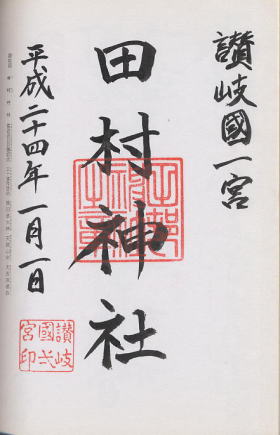 讃岐國一宮
田村神社
平成二十四年一月一日
讃岐
國弌
宮印